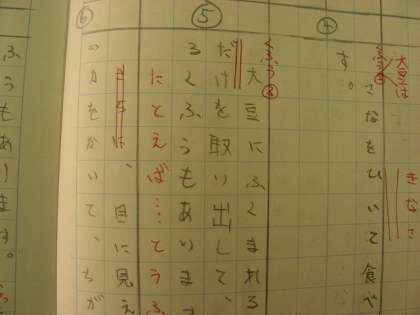 ④
大豆は
きなこ
す。さなをひいて食べ
⑤
くふう②
大豆にふくまれる
だけを取り出して、
るくふうもあります
にとえば…とうふ
⑥
さらに、目に見え
のカをかいて、ちが
ふうもあります。